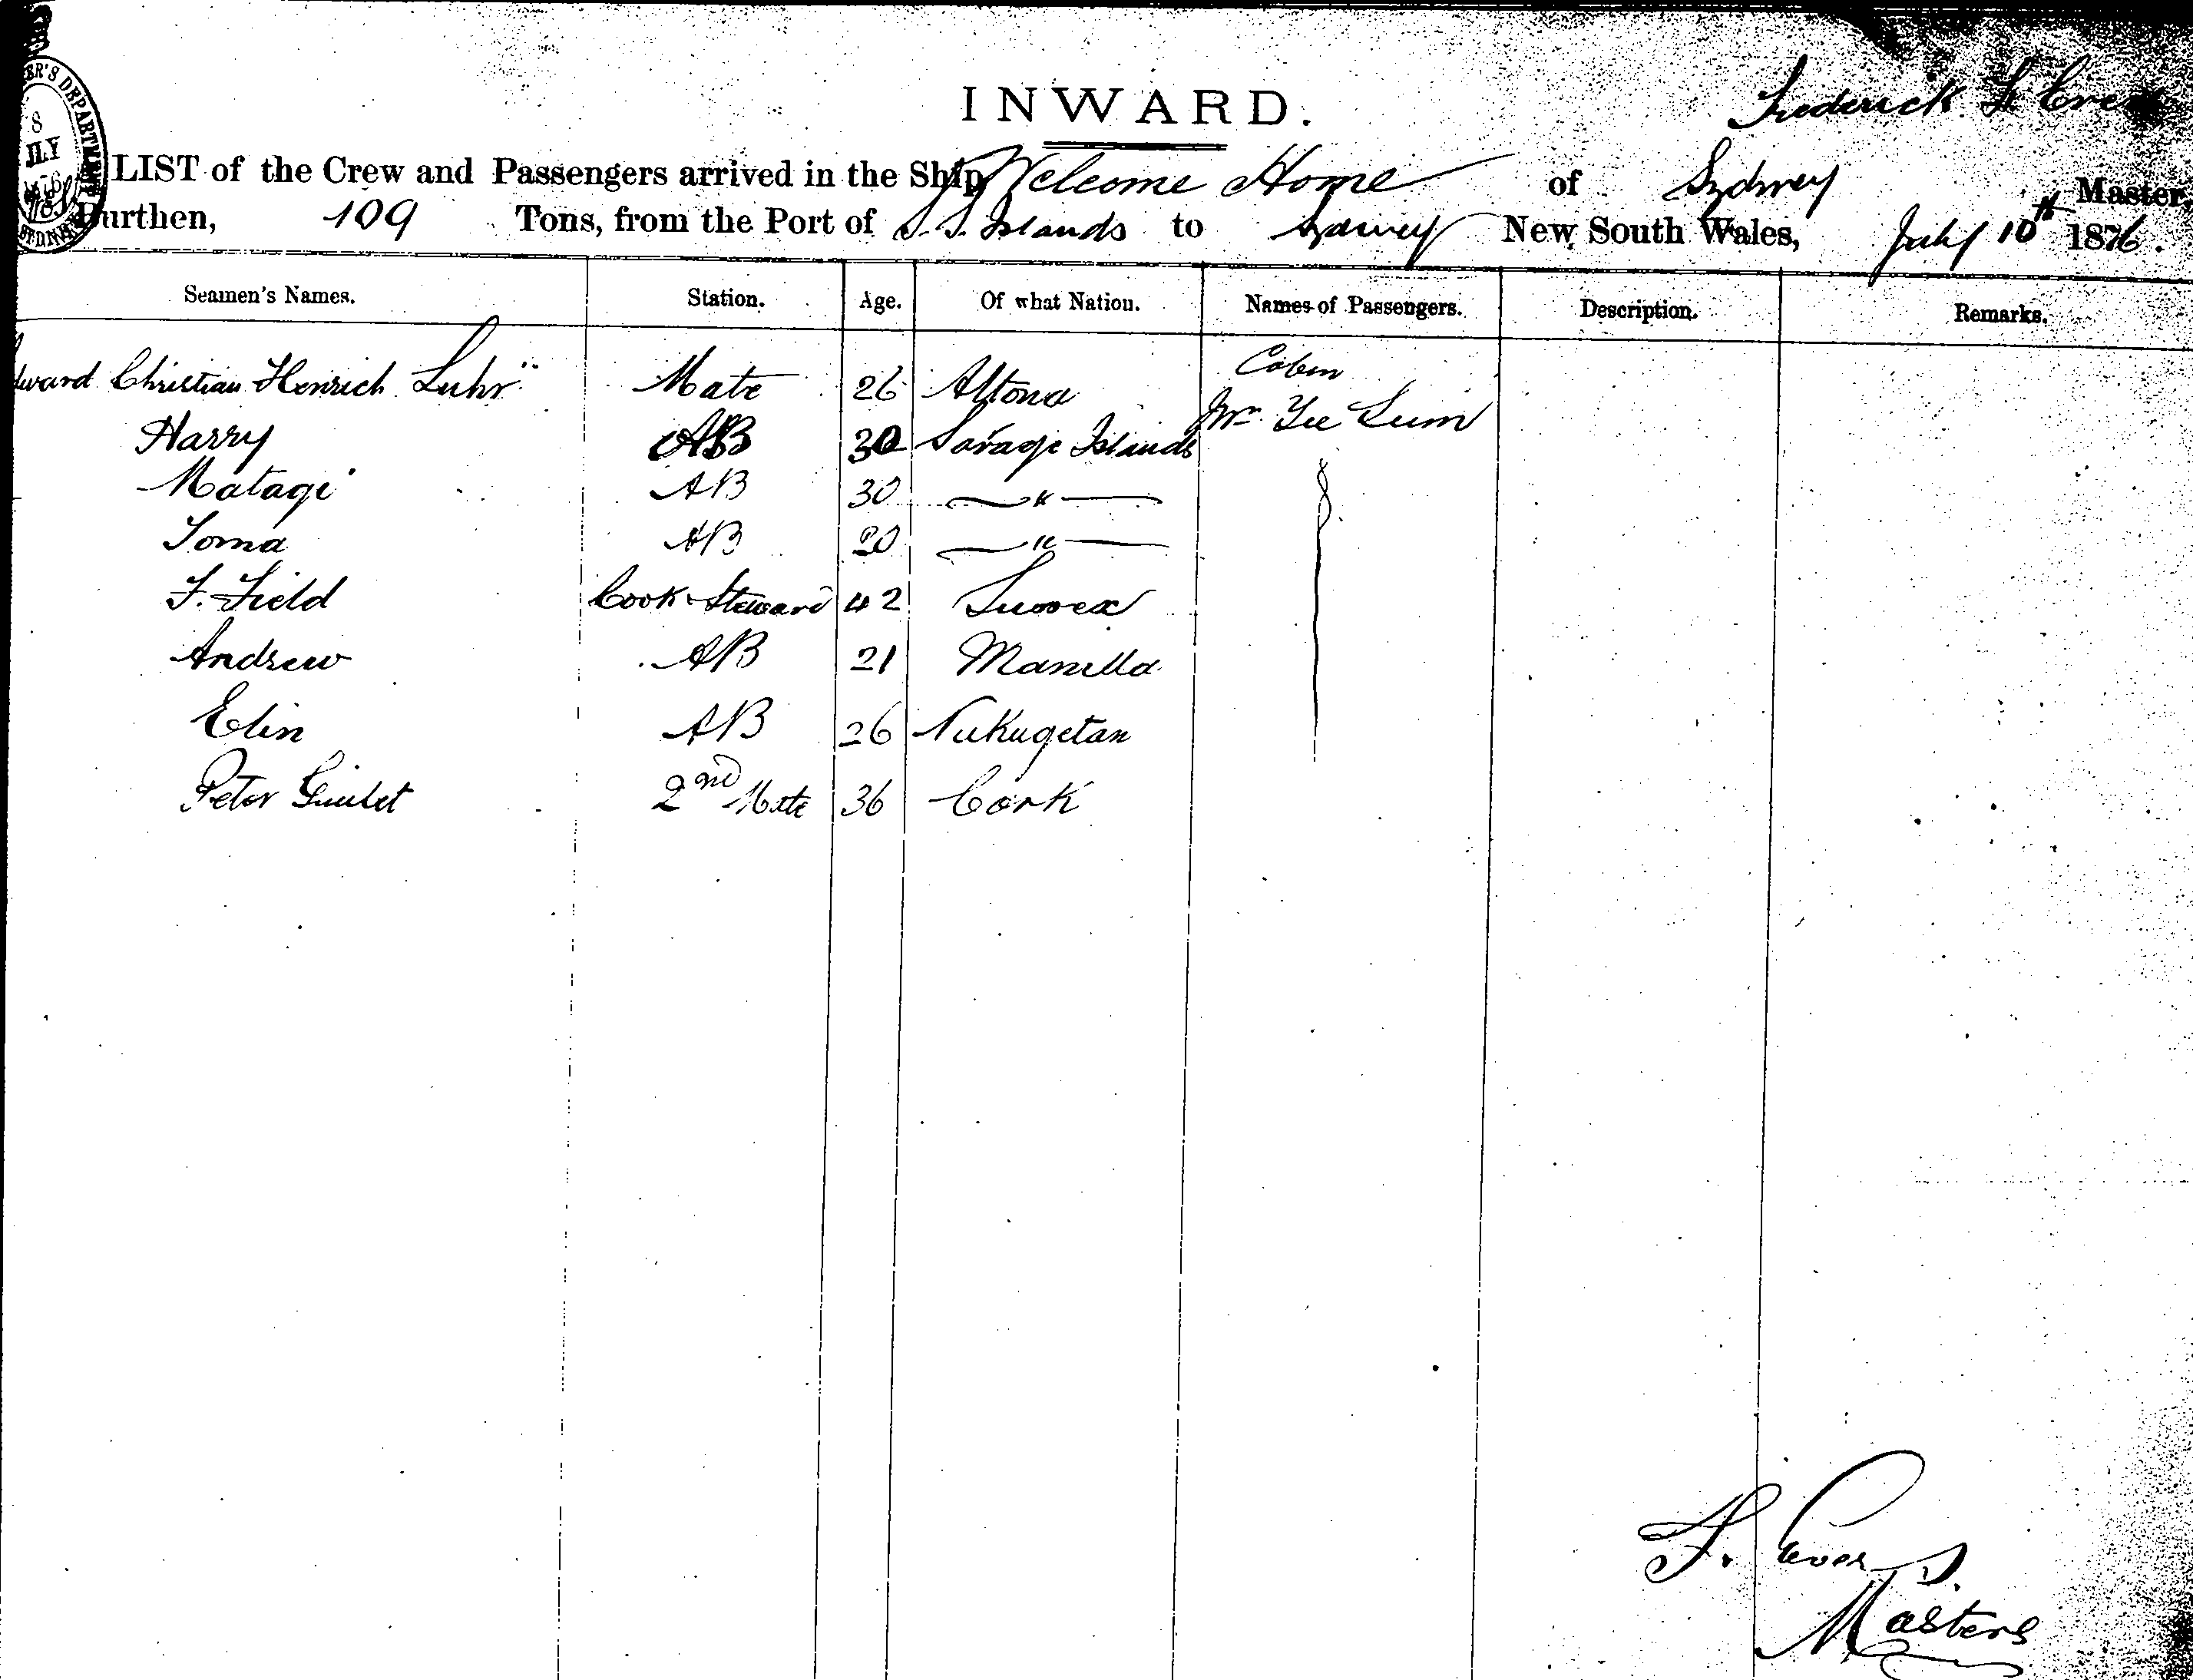 INWARD.
Frederick
LIST of the Crew and Passengers arrived in the Ship Welcome Home of Sydney Master,
Burthen, 109 Tons, from the Port of S. S. Islands to Sydney New South Wales, July 10th 1876.
Seamen's Names. Station. Age. Of what Nation. Names of Passengers. Description. Remarks.
Cabin
Christian Henrich Luhr Mate 26 Altona
Mr Yee Lum
Harry AB 30 Savage Islands
Matagi AB 30 "
Toma AB 20 "
F. Field Cook & Steward 42 Sussex
Andrew AB 21 Manilla
Elin AB 26 Nukugetan
Peter 2nd Mate 36 Cork
F.
Masters